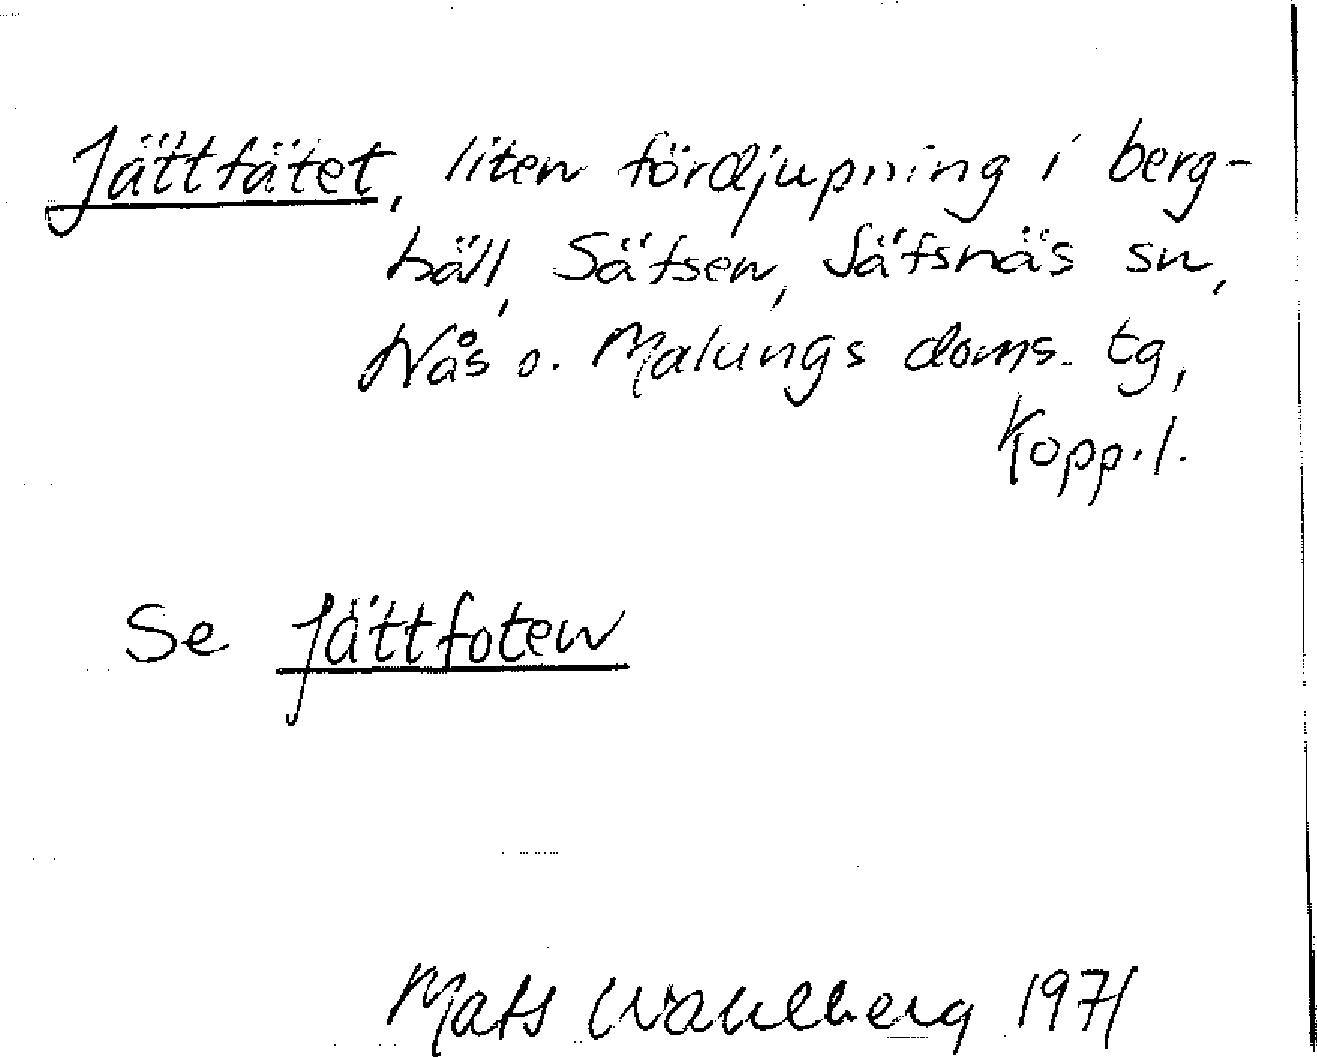 Jättfätet, liten fördjupning i berg-
häll, Säfsen, Säfsnäs sn,
Nås o. Malungs doms. tg,
Kopp. l.
Se Jättfoten
Mats Wahlberg 1971